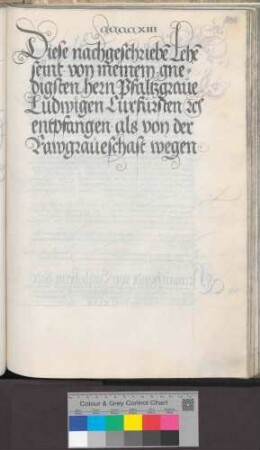 ccccxiii
Diese nachgeschriebē Lehē
seint von meinem gne⸗
digsten hern Pfaltzgraue
Ludwigen Curfursten ꝛc
entpfangen als von der
Rawgraueschaft wegen
Colour & Grey Control Chart